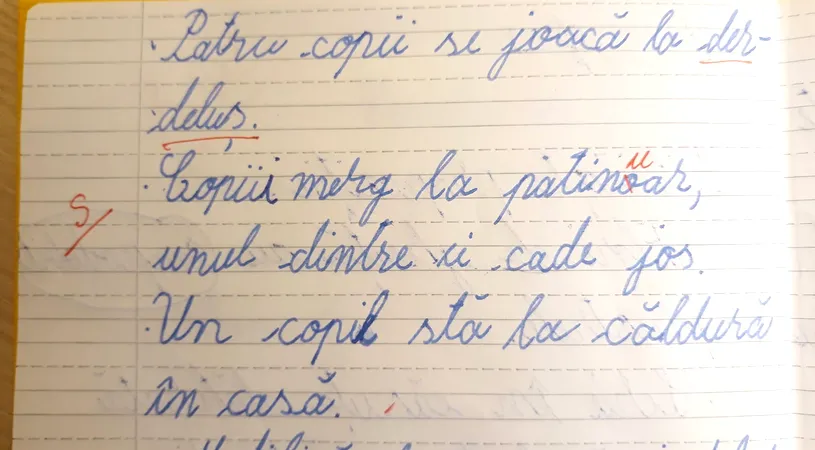 Patru copii se joacă la der-
deluș.
Copiii merg la patinoar,
unul dintre ei cade jos.
Un copil stă la căldură
în casă.